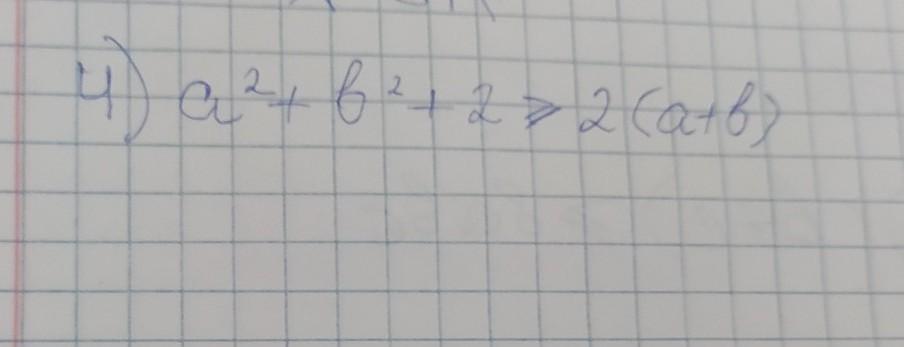 4) a² + b² + 2 ⩾ 2(a+b)